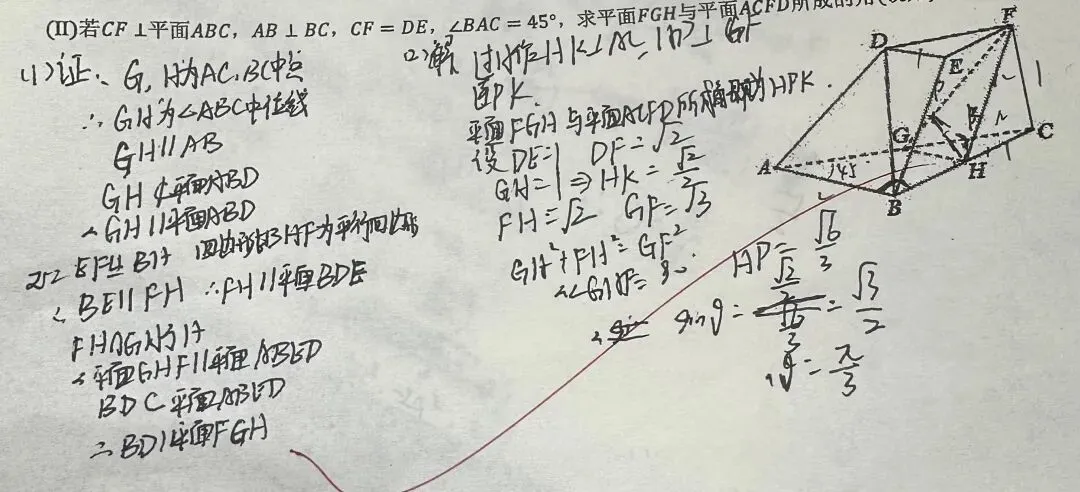 (II)若CF⊥平面ABC，AB⊥BC，CF=DE，∠BAC=45°，求平面FGH与平面ACFD所成的角
(1)证: ∵ G, H为AC, BC中点
∴ GH为△ABC中位线
GH∥AB
GH⊄平面ABD
∴ GH∥平面ABD
又∵ EF∥BH 四边形EBHF为平行四边形
∴ BE∥FH ∴FH∥平面BDE
FH∩GH于H
∴ 平面GHF∥平面ABED
BD⊂平面ABED
∴ BD∥平面FGH
(2)解 过H作HK⊥AC, HP⊥GF
连PK.
平面FGH与平面ACFD所成角即为HPK.
设DE=1 DF=√2
GH=1 ⇒ HK=√2/2
FH=√2 GF=√3
GH²+FH²=GF²
∴∠GHF=90
HP=√6/3
∴ sinθ=(√2/2)/(√6/3)=√3/2
∴θ=π/3
D
E
F
A
45°
G
C
H
B